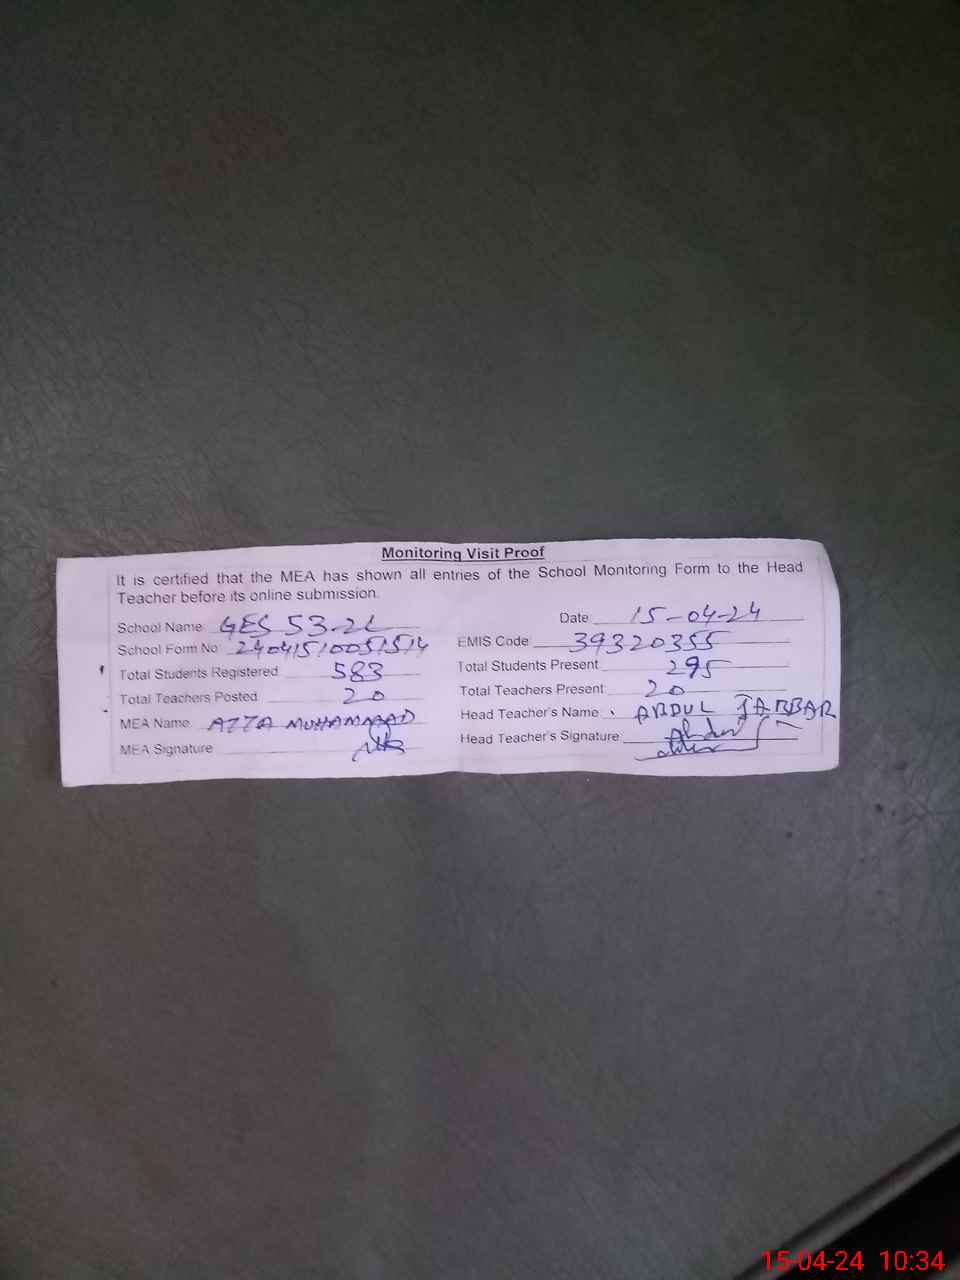 Monitoring Visit Proof
It is certified that the MEA has shown all entries of the School Monitoring Form to the Head
Teacher before its online submission.
School Name GES 53-2L Date 15-04-24
School Form No 24041510051514 EMIS Code 39320355
Total Students Registered 583 Total Students Present 295
Total Teachers Posted 20 Total Teachers Present 20
MEA Name AZZA MUHAMMAD Head Teacher's Name ABDUL JABBAR
MEA Signature Head Teacher's Signature
15-04-24 10:34